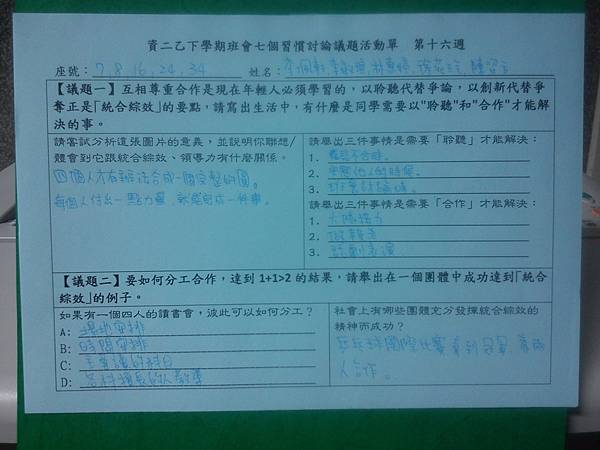 資二乙下學期班會七個習慣討論議題活動單　第十六週
座號：7.8.16.24.34　姓名：
【議題一】互相尊重合作是現在年輕人必須學習的，以聆聽代替爭論，以創新代替爭
奪正是「統合綜效」的要點，請寫出生活中，有什麼是同學需要以"聆聽"和"合作"才能解
決的事。
請嘗試分析這張圖片的意義，並說明你聯想/
體會到它跟統合綜效、領導力有什麼關係。
四個人才有辦法合成一個完整的圓。
每個人付出一點力量，就能完成一件事。
請舉出三件事情是需要「聆聽」才能解決：
1. 意見不合時。
2.
3.
請舉出三件事情是需要「合作」才能解決：
1. 大隊接力
2. 做報告
3. 話劇表演
【議題二】要如何分工合作，達到 1+1>2 的結果，請舉出在一個團體中成功達到「統合
綜效」的例子。
如果有一個四人的讀書會，彼此可以如何分工？
A: 場地安排
B: 時間安排
C: 主要讀的科目
D: 各科擅長的人教導
社會上有哪些團體充分發揮統合綜效的
精神而成功？
乒乓球國際比賽拿到冠軍，靠兩
人合作。